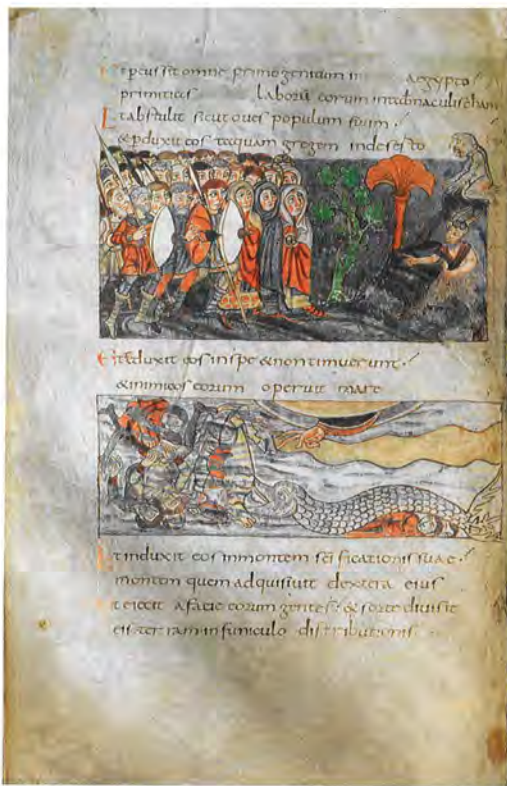 Et pcussit omne primogenitum in Aegypto
primitias laborū eorum intabnaculis cham
Et abstulit sicut oues populum suum
& pduxit eos taquam gregem indeserto
Et eduxit eos inspe & non timuerunt
& inimicos eorum operuit mare
Et induxit eos inmontem scificationis suae
montem quem adquisiuit dextera eius
Et eiecit afacie eorum gentes & sorte diuisit
eis terram infuniculo distributionis